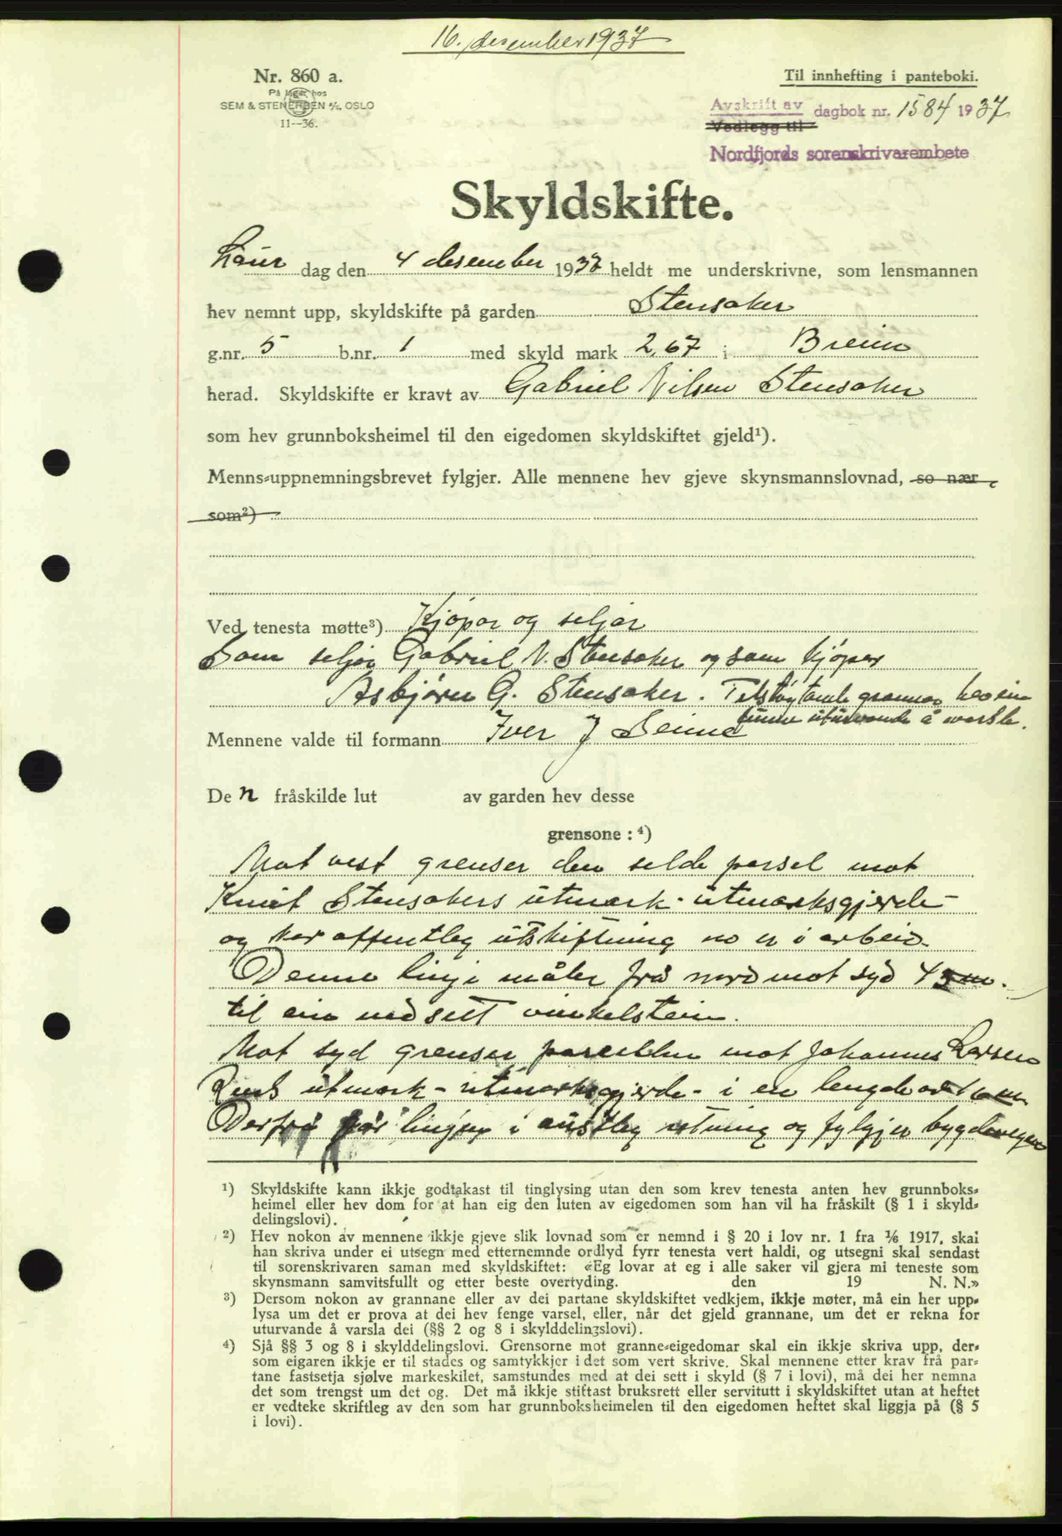 16. desember 1937
Nr. 860 a.
På lager hos
SEM & STENERSEN A/S, OSLO
11--36.
Til innhefting i panteboki.
Avskrift av
Vedlegg til
dagbok nr. 1584 1937
Nordfjords sorenskrivarembete
Skyldskifte.
Laur dag den 4 desember 1937 heldt me underskrivne, som lensmannen
hev nemnt upp, skyldskifte på garden Stensaker
g.nr. 5 b.nr. 1 med skyld mark 2,67 i Breim
herad. Skyldskifte er kravt av Gabriel Nilsen Stensaker
som hev grunnboksheimel til den eigedomen skyldskiftet gjeld¹).
Menns-uppnemningsbrevet fylgjer. Alle mennene hev gjeve skynsmannslovnad, so nær
som²)
Ved tenesta møtte³) Kjøpar og seljar
Som seljar Gabriel N. Stensaker og som kjøpar
Asbjørn G. Stensaker. Tilstøytande grannar hev ein
funne uturvande å varsle.
Mennene valde til formann Iver J Seime
De n fråskilde lut av garden hev desse
grensone : ⁴)
Mot vest grenser den selde parsel mot
Knut Stensakers utmark - utmarksgjerde -
og kor offentleg utskiftning no er i arbeid.
Denne linje måler frå nord mot syd 45 m.
til ein nedsett vinkelstein.
Mot syd grenser parsellen mot Johannes Larsen
utmark - utmarksgjerde - i en lengde av
Derfrå går linjen i austleg retning og fylgjer bygdevegen
¹) Skyldskifte kann ikkje godtakast til tinglysing utan den som krev tenesta anten hev grunnboks-
heimel eller hev dom for at han eig den luten av eigedomen som han vil ha fråskilt (§ 1 i skyld-
delingslovi).
²) Hev nokon av mennene ikkje gjeve slik lovnad som er nemnd i § 20 i lov nr. 1 fra ⅟₆ 1917, skal
han skriva under ei utsegn med etternemnde ordlyd fyrr tenesta vert haldi, og utsegni skal sendast
til sorenskrivaren saman med skyldskiftet: «Eg lovar at eg i alle saker vil gjera mi teneste som
skynsmann samvitsfullt og etter beste overtyding. den 19 N. N.»
³) Dersom nokon av grannane eller av dei partane skyldskiftet vedkjem, ikkje møter, må ein her upp-
lysa um det er prova at dei hev fenge varsel, eller, når det gjeld grannane, um det er rekna for
uturvande å varsla dei (§§ 2 og 8 i skylddelingslovi).
⁴) Sjå §§ 3 og 8 i skylddelingslovi. Grensorne mot granne-eigedomar skal ein ikkje skriva upp, der-
som eigaren ikkje er til stades og samtykkjer i det som vert skrive. Skal mennene etter krav frå par-
tane fastsetja sjølve markeskilet, samstundes med at dei sett i skyld (§ 7 i lovi), må dei her nemna
det som trengst um det og. Det må ikkje stiftast bruksrett eller servitutt i skyldskiftet utan at heftet
er vedteke skriftleg av den som har grunnboksheimelen til den eigedomen heftet skal liggja på (§ 5
i lovi).